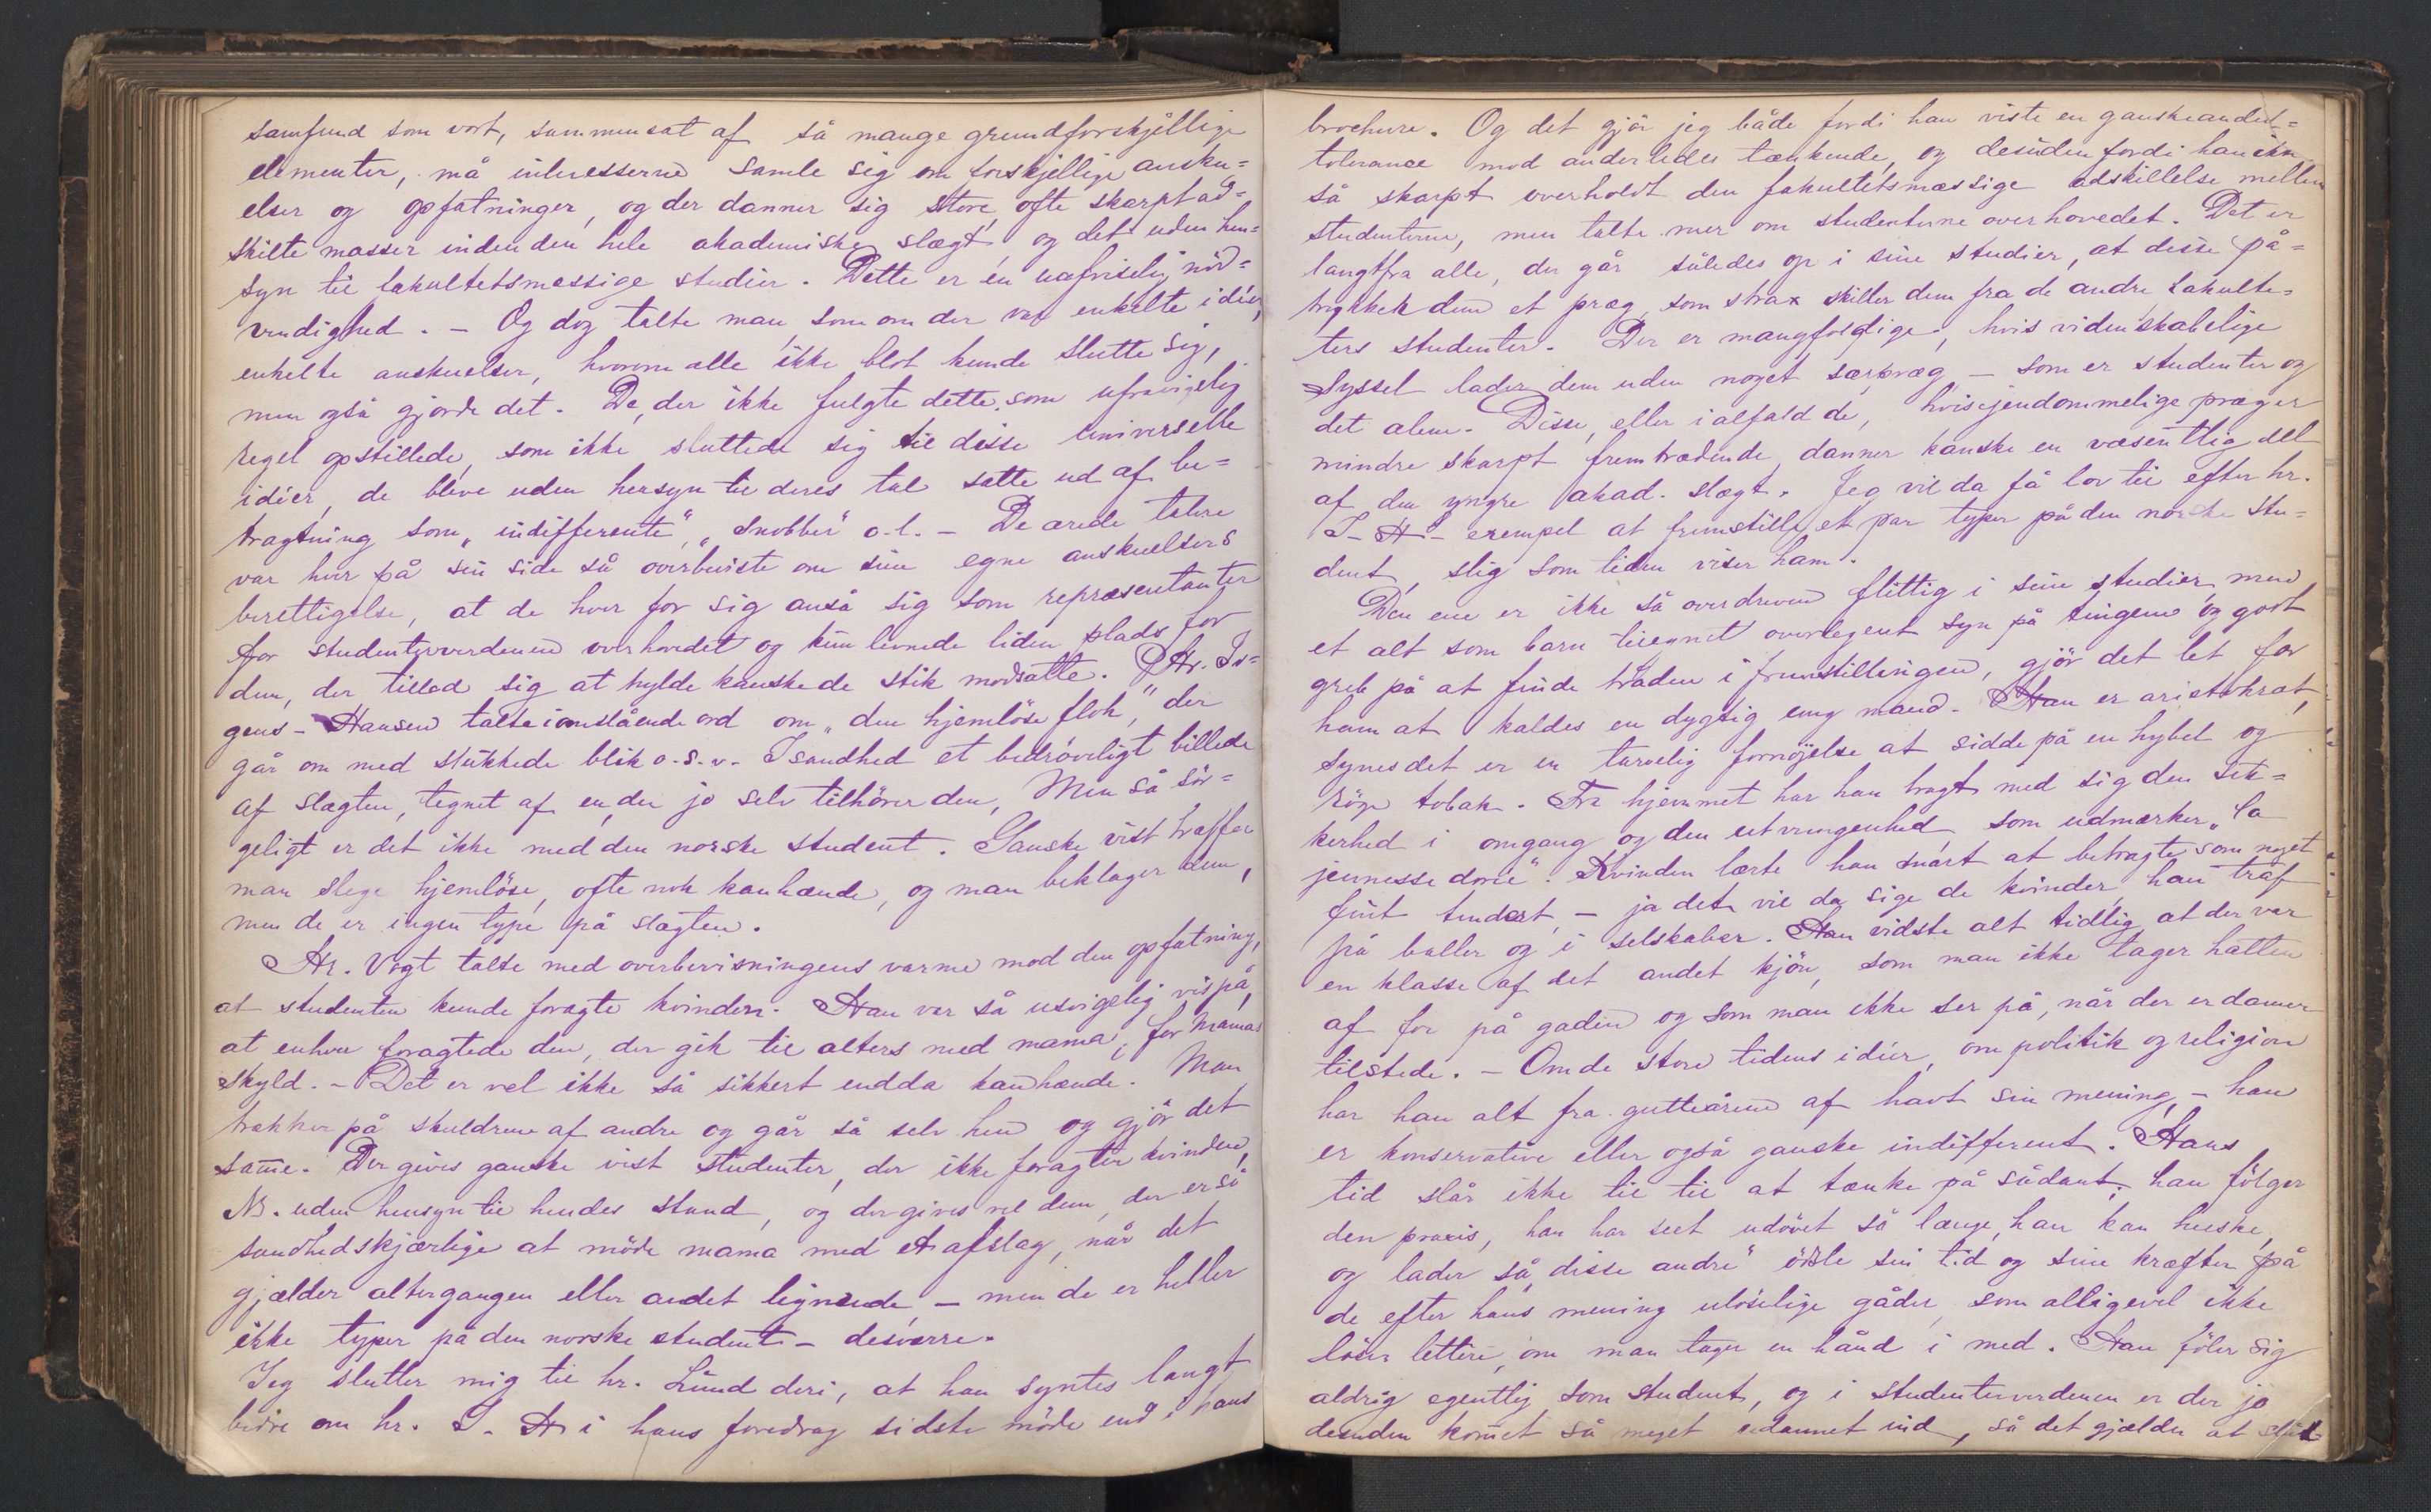 samfund som vort, sammensat af så mange grundforskjellige
elementer, må interesserne samle sig om forskjellige ansku=
elser og opfatninger, og der danner sig store, ofte skarpt ad=
skilte masser inden den hele akademiske slægt, og det uden hen=
syn til fakultetsmæssige studier. Dette er en uafviselig nöd=
vendighed. – Og dog talte man som om der var enkelte idéer,
enkelte anskuelser, hvorom alle ikke blot kunde slutte sig,
men også gjorde det. De, der ikke fulgte dette som ufravigelig
regel opstillede, som ikke sluttede sig til disse universelle
idéer, de bleve uden hensyn til deres tal satte ud af be=
tragtning som „indifferente", „snobber" o.l. – De ærede talere
var hver på sin side så overbeviste om sine egne anskuelsers
berettigelse, at de hver for sig anså sig som repræsentanter
for studenterverdenen overhovedet og kun levnede liden plads for
dem, der tillod sig at hylde kanske de stik modsatte. Hr. Ir=
gens-Hansen talte i omstående ord om „den hjemlöse flok", der
går om med slukkede blik o.s.v. Isandhed et bedröveligt billede
af slægten, tegnet af en, der jo selv tilhörer den, Men så sör=
geligt er det ikke med den norske student. Ganske vist træffer
man slege hjemlöse, ofte nok kanhænde, og man beklager dem,
men de er ingen type på slægten.
Hr. Vogt talte med overbevisningens varme mod den opfatning,
at studenten kunde foragte kvinden. Han var så usvigelig vis på,
at enhver foragtede den, der gik til alters med mama, for mamas
skyld. – Det er vel ikke så sikkert endda kanhænde. Man
trækker på skuldrene af andre og går så selv hen og gjör det
samme. Der gives ganske vist studenter, der ikke foragter kvinden,
NB. uden hensyn til hendes stand, og der gives vel dem, der er så
sandhedskjærlige at möde mama med et afslag, når det
gjælder altergangen eller andet lignende – men de er heller
ikke typer på den norske student – desværre.
Jeg slutter mig til hr. Lund deri, at han syntes langt
bedre om hr. I. H i hans foredrag sidste möde end i hans
brochure. Og det gjör jeg både fordi han viste en ganske anden
tolerance mod anderledes tænkende, og desuden fordi han ikke
så skarpt overholdt den fakultetsmæssige adskillelse mellem
studenterne, men talte mer om studenterne overhovedet. Det er
langtfra alle, der går således op i sine studier, at disse på=
trykker dem et præg, som strax skiller dem fra de andre fakulte=
ters studenter. Der er mangfoldige, hvis videnskabelige
syssel lader dem uden noget særpræg – som er studenter og
det alene. Disse, eller i alfald de, hvis ejendommelige præg er
mindre skarpt fremtrædende, danner kanske en væsentlig del
af den yngre akad. slægt. Jeg vil da få lov til efter hr.
I-H's exempel at fremstille et par typer på den norske stu=
dent, slig som tiden viser ham.
Den ene er ikke så overdreven flittig i sine studier, men
et alt som barn tilegnet overlegent syn på tingene og godt
greb på at finde tråden i fremstillingen, gjör det let for
ham at kaldes en dygtig ung mand. Han er aristokrat,
synes det er en tarvelig fornöjelse at sidde på en hybel og
röge tobak. Fra hjemmet har han bragt med sig den sik=
kerhed i omgang og den utvungenhed, som udmærker „la
jeunesse dorée". Kvinden lærte han snart at betragte som noget
fint tendert, – ja det vil da sige de kvinder, han traf
på baller og i selskaber. Han vidste alt tidlig, at der var
en klasse af det andet kjön, som man ikke tager hatten
af for på gaden og som man ikke ser på, når der er damer
tilstede. – Om de store tidens idéer, om politik og religion
har han alt fra gutteårene af havt sin mening, – han
er konservative eller også ganske indifferent. Hans
tid slår ikke til til at tænke på sådant; han fölger
den praxis, han har seet udövet så længe, han kan huske,
og lader så „disse andre" ödsle sin tid og sine kræfter på
de efter hans mening ulöselige gåder, som alligevel ikke
löses lettere, om man tager en hånd i med. Han föler sig
aldrig egentlig som student, og i studenterverdenen er der jo
desuden kommet så meget udannet ind, så det gjælder at